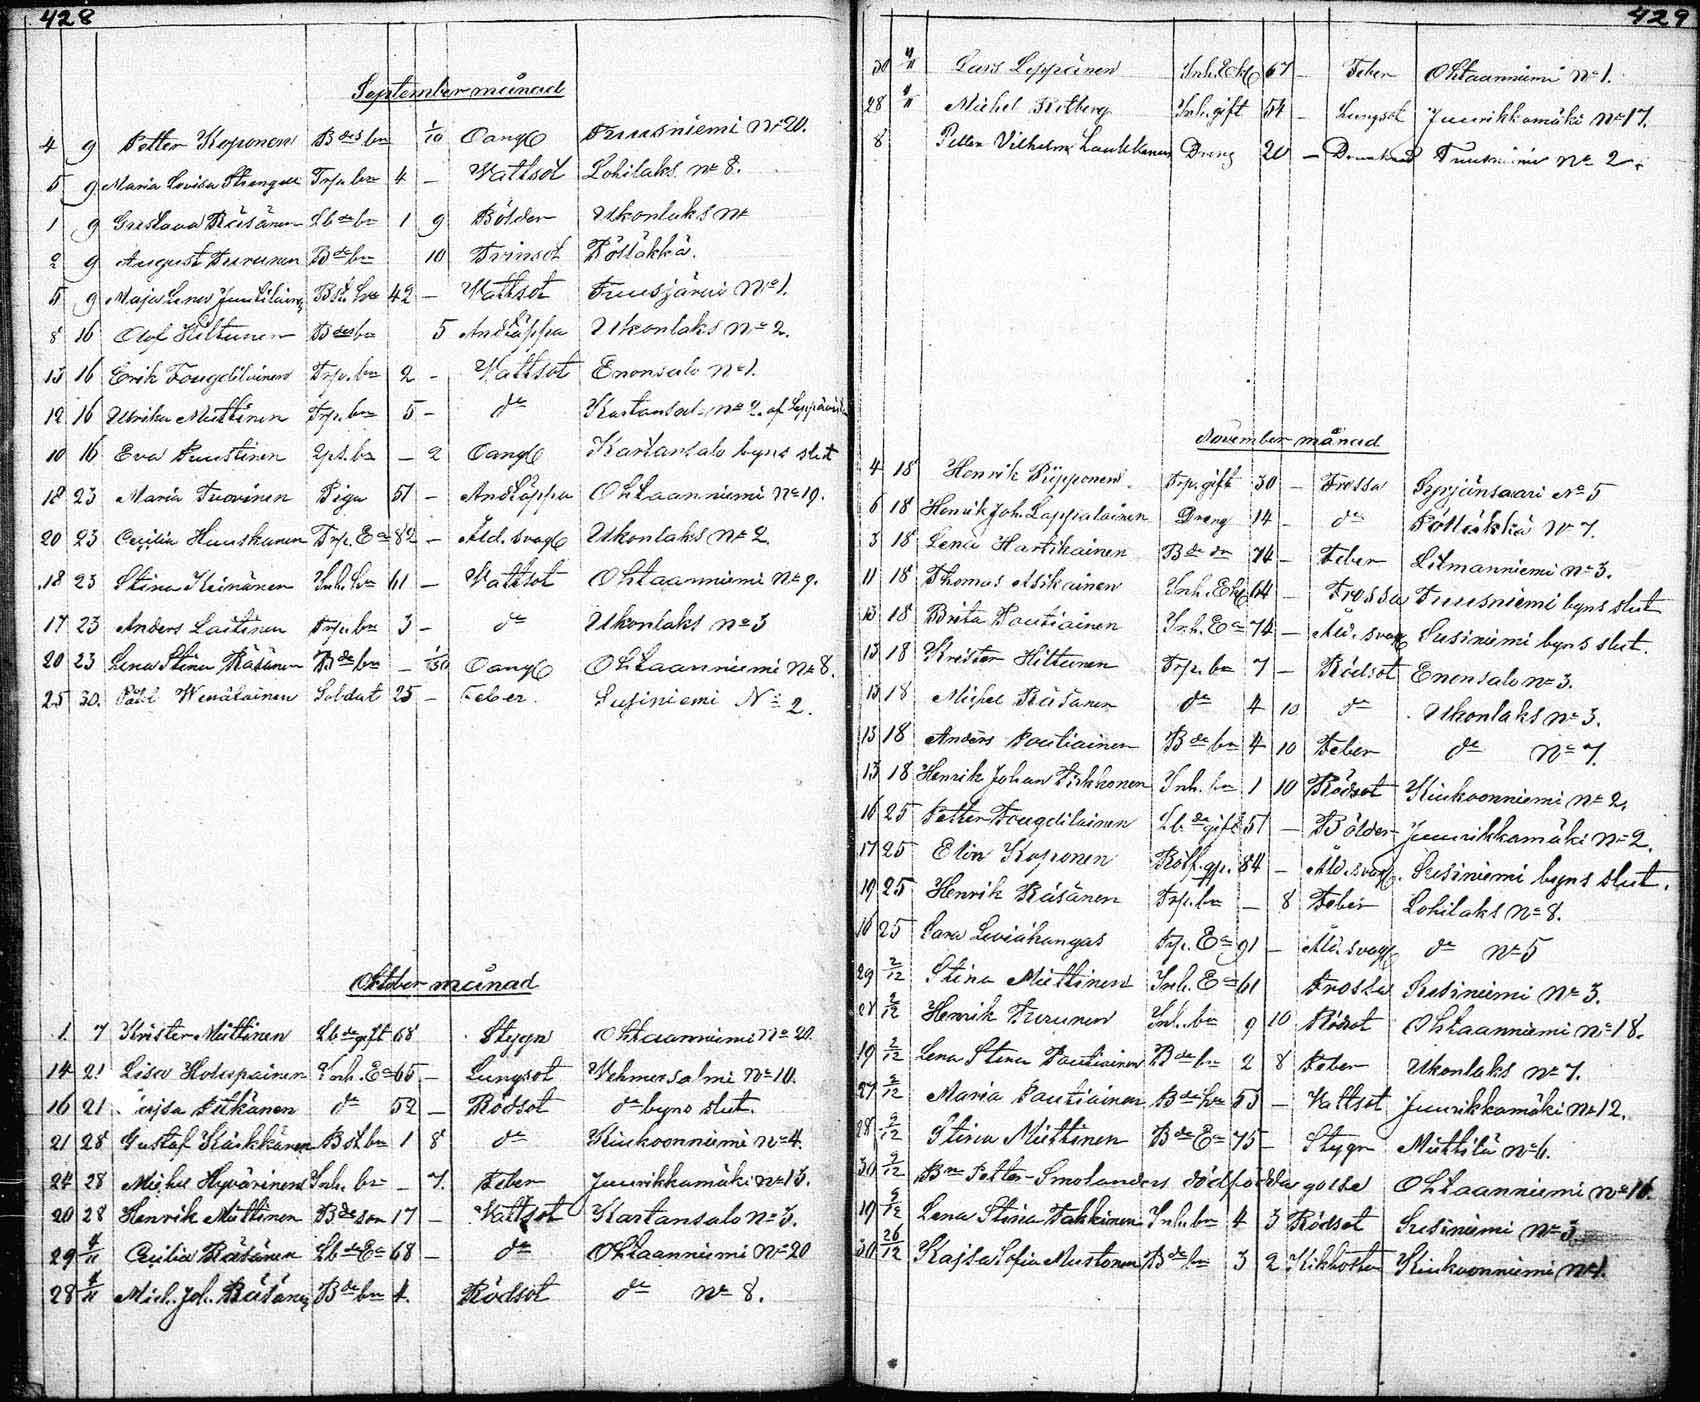 428
September månad
4 9 Petter Koponen Bdes bn 1/10 Oangf Tuusniemi No 20.
5 9 Maria Lovisa Strengell Trp. bn 4 – Wattsot Lohilaks No 8.
1 9 Gustava Räsänen Lbde bn 1 9 Bölder Ukonlaks No
2 9 August Turunen Bde bn 10 Trinsot Pölläkkä.
5 9 Maja Lena Juutilainen Bdk. hu 42 – Wattsot Tuusjärvi No 1.
8 16 Olof Hiltunen Bdes bn 5 Andtäppa Ukonlaks No 2.
13 16 Erik Fougdilainen Trp. bn 2 – Wattsot Enonsalo No 1.
12 16 Ulrika Miettinen Trp. bn 5 – do Kartansalo No 2. af Leppävirta
10 16 Eva Puustinen Lps. bn – 2 Oangf Kartansalo byns slut
18 23 Maria Tuovinen Piga 51 – Andtäppa Ohtaanniemi No 19.
20 23 Cecilia Huuskunen Trp. Ea 82 – Åld. svagf Ukonlaks No 2
18 23 Stina Keinänen Inh. hu 61 – Wattsot Ohtaanniemi No 9.
17 23 Anders Laitinen Trp. bn 3 – do Ukonlaks No 3
20 23 Lena Stina Räsänen Bde bn – 1/30 Oangf Ohtaanniemi No 8.
25 30. Påhl Wenäläinen Soldat 25 – Feber. Susiniemi No 2.
Oktober månad
1 7 Krister Miettinen Lbde gift 68 Stygn Ohtaanniemi No 20.
14 21 Lisa Holopainen Inh. Ea 65 – Lungsot Wehmersalmi No 10.
16 21 Kajsa Pitkänen do 52 – Rödsot do byns slut.
21 28 Gustaf Käikkänen Bdk bn 1 8 do Kiukoonniemi No 4.
24 28 Michel Hyvärinen Inh. bn – 7. Feber Juurikkamäki No 13.
20 28 Henrik Miettinen Bde son 17 – Wattsot Kartansalo No 3.
29 4/11 Cecilia Räsänen Lbde Ea 68 – do Ohtaanniemi No 20
28 4/11 Mich. Joh. Räsänen Bde bn 4. Rödsot do No 8.
429
30 4/11 Lars Leppänen Inh. Ekl 67 – Feber Ohtaanniemi No 1.
28 4/11 Michel Rotberg Inh. gift 54 – Lungsot Juurikkamäki No 17.
8 Petter Vilhelm Laukkanen Dreng 20 – Drunknad Tuusniemi No 2.
November månad
4 18 Henrik Pipponen. Trp. gift 30 – Frossa Syrjänsaari No 5
6 18 Henrik Joh. Lappalainen Dreng 14 – do Pölläkkä No 7.
3 18 Lena Hartikainen Bde dr 74 – Feber Litmanniemi No 3.
11 18 Thomas Asikainen Inh. Ekl 64 – Frossa Tuusniemi byns slut
13 18 Brita Pautiainen Inh. Ea 74 – Åld. svagf Susiniemi byns slut.
13 18 Krister Hiltunen Trp. bn 7 – Rödsot Enonsalo No 3.
13 18 Michel Räsänen do 4 10 do Ukonlaks No 3.
13 18 Anders Pautiainen Bde bn 4 10 Feber do No 7.
13 18 Henrik Johan Pirhonen Inh. bn 1 10 Rödsot Kiukoonniemi No 2.
16 25 Petter Fougdilainen Lb. de gift 57 – Bölder Juurikkamäki No 2.
17 25 Elin Koponen Rotf. gp. 84 – Åld. svagf. Susiniemi byns slut.
19 25 Henrik Räsänen Trp. bn – 8 Feber Lohilaks No 8.
16 25 Sara Leviäkangas Trp. Ea 91 – Åld. svagf do No 5
29 2/12 Stina Miettinen Inh. Ea 61 Frossa Susiniemi No 3.
27 2/12 Henrik Turunen Inh. bn 9 10 Rödsot Ohtaanniemi No 18.
19 2/12 Lena Stina Pautiainen Bde bn 2 8 Feber Ukonlaks No 7.
27 9/12 Maria Pautiainen Bde hu 55 – Wattsot Juurikkamäki No 12.
28 9/12 Stina Miettinen Bde Ea 75 – Stygn Miettilä No 6.
30 9/12 Bn Petter Smolanders dödfödda gosse Ohtaanniemi No 16.
19 9/12 Lena Stina Takkinen Inh. bn 4 3 Rödsot Susiniemi No 3
30 26/12 Kajsa Sofia Mustonen Bde bn 3 2 Kikhosta Kiukoonniemi No 1.